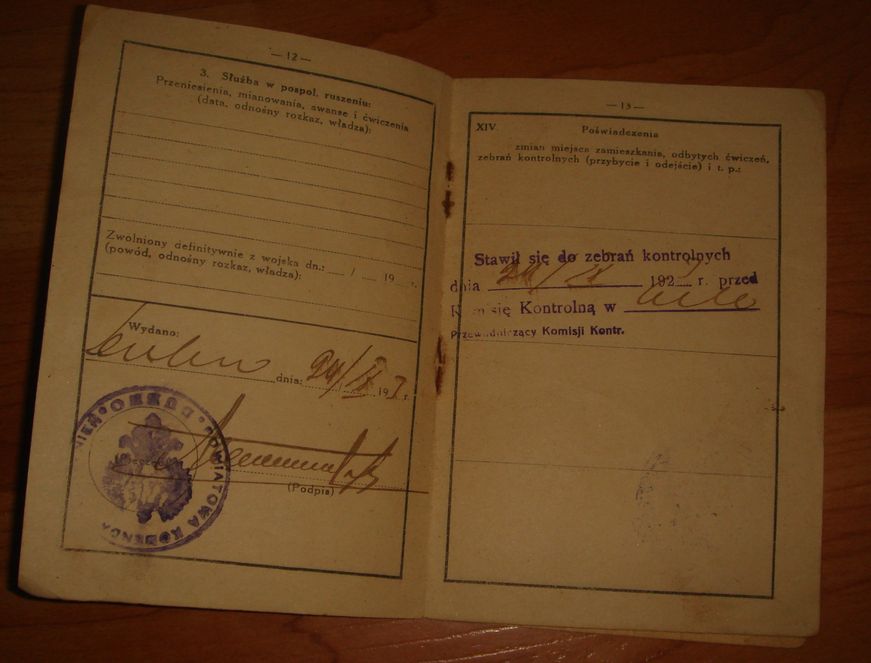 — 12 —
3. Służba w pospol. ruszeniu:
Przeniesienia, mianowania, awanse i ćwiczenia
(data, odnośny rozkaz, władza):
Zwolniony definitywnie z wojska dn.: / 19 r.
(powód, odnośny rozkaz, władza):
Wydano:
dnia: 24/IX 193 r.
(Podpis)
POWIATOWA KOMENDA
— 13 —
XIV. Poświadczenia
zmian miejsca zamieszkania, odbytych ćwiczeń,
zebrań kontrolnych (przybycie i odejście) i t. p.:
Stawił się do zebrań kontrolnych
dnia 192 r. przed
Komisję Kontrolną w
Przewodniczący Komisji Kontr.